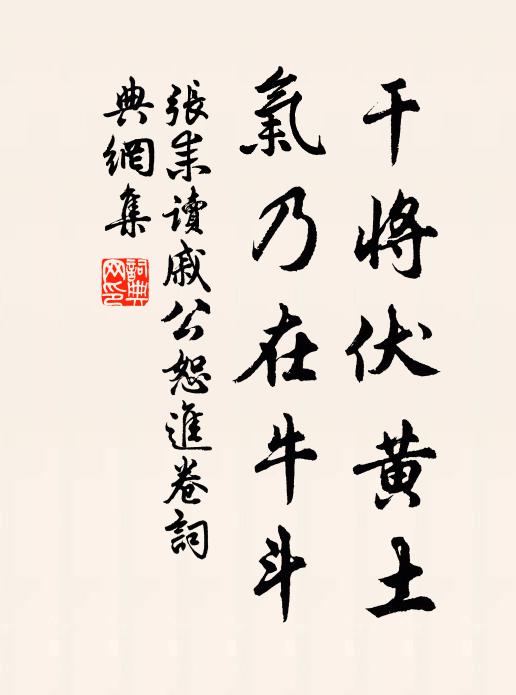 干將伏黄土
氣乃在牛斗
張耒讀戚公恕進卷詞
典網集
詞典
网印